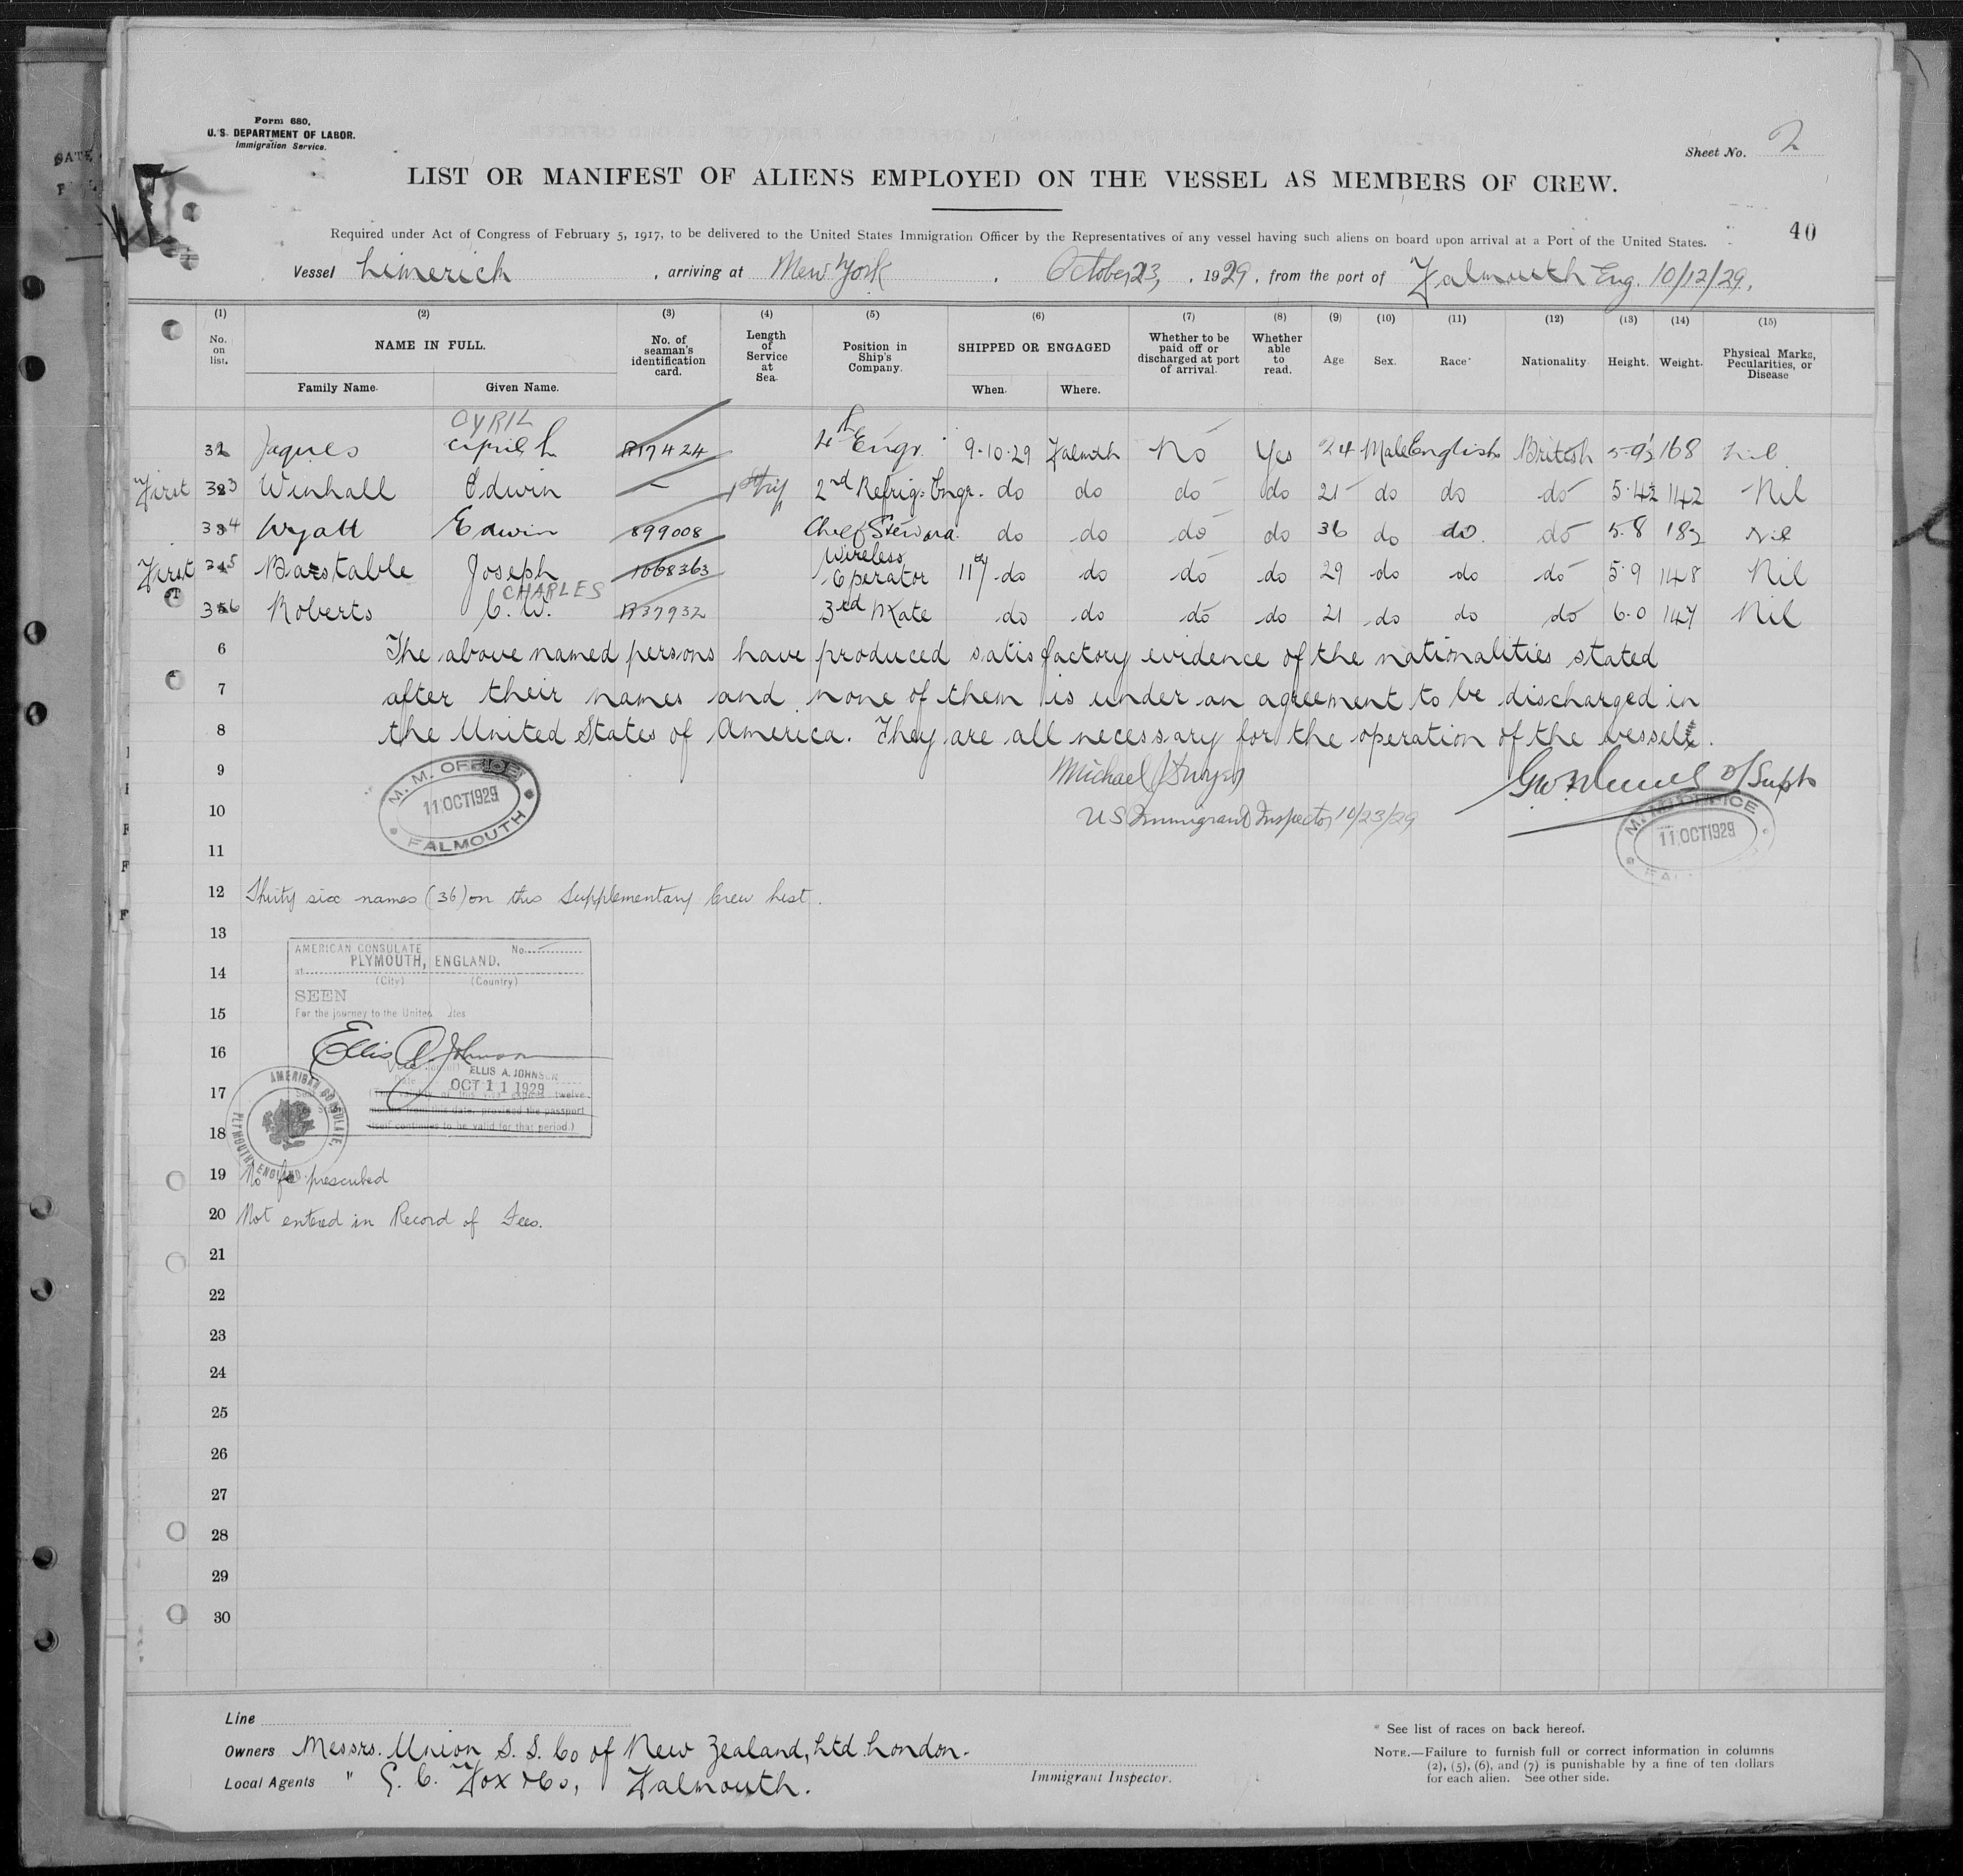 Form 680.
U. S. DEPARTMENT OF LABOR.
Immigration Service.
Sheet No. 2
LIST OR MANIFEST OF ALIENS EMPLOYED ON THE VESSEL AS MEMBERS OF CREW.
40
Required under Act of Congress of February 5, 1917, to be delivered to the United States Immigration Officer by the Representatives of any vessel having such aliens on board upon arrival at a Port of the United States.
Vessel Limerick, arriving at New York, October 23, 1929, from the port of Falmouth Eng. 10/12/29.
(1) (2) (3) (4) (5) (6) (7) (8) (9) (10) (11) (12) (13) (14) (15)
No. on list. NAME IN FULL. Family Name. Given Name. No. of seaman's identification card. Length of Service at Sea. Position in Ship's Company. SHIPPED OR ENGAGED When. Where. Whether to be paid off or discharged at port of arrival. Whether able to read. Age Sex. Race* Nationality Height. Weight. Physical Marks, Pecularities, or Disease
CYRIL
32 Jaques Cyril L R17424 4th Engr. 9.10.29 Falmth No Yes 24 Male English British 168 Nil
First 33 Winhall Edwin 1st Trip 2nd Refrig. Engr. do do do do 21 do do do 5.4½ 142 Nil
34 Wyatt Edwin 899008 Chief Steward do do do do 36 do do do 5.8 182 Nil
First 35 Barstable Joseph 1068363 Wireless Operator 11th do do do do 29 do do do 5.9 148 Nil
CHARLES
36 Roberts C. W. R37932 3rd Mate do do do do 21 do do do 6.0 147 Nil
6 The above named persons have produced satisfactory evidence of the nationalities stated
7 after their names and none of them is under an agreement to be discharged in
8 the United States of America. They are all necessary for the operation of the vessel.
9 Michael J Dwyer D/Supt
M. M. OFFICE
11 OCT 1929
FALMOUTH
10 US Immigrant Inspector 10/23/29
M. M. OFFICE
11 OCT 1929
11
12 Thirty six names (36) on this Supplementary Crew List.
13
AMERICAN CONSULATE No.
14
at PLYMOUTH, ENGLAND.
(City) (Country)
SEEN
15
For the journey to the United States
16
Ellis A. Johnson
ELLIS A. JOHNSON
17
OCT 11 1929
(The validity of this visa expires twelve
months from this date, provided the passport
itself continues to be valid for that period.)
18
AMERICAN CONSULATE, PLYMOUTH, ENGLAND.
19 No fee prescribed
20 Not entered in Record of Fees.
21
22
23
24
25
26
27
28
29
30
Line
Owners Messrs. Union S. S. Co of New Zealand, Ltd. London.
Local Agents " G. C. Fox & Co, Falmouth.
Immigrant Inspector.
* See list of races on back hereof.
NOTE.—Failure to furnish full or correct information in columns
(2), (5), (6), and (7) is punishable by a fine of ten dollars
for each alien. See other side.